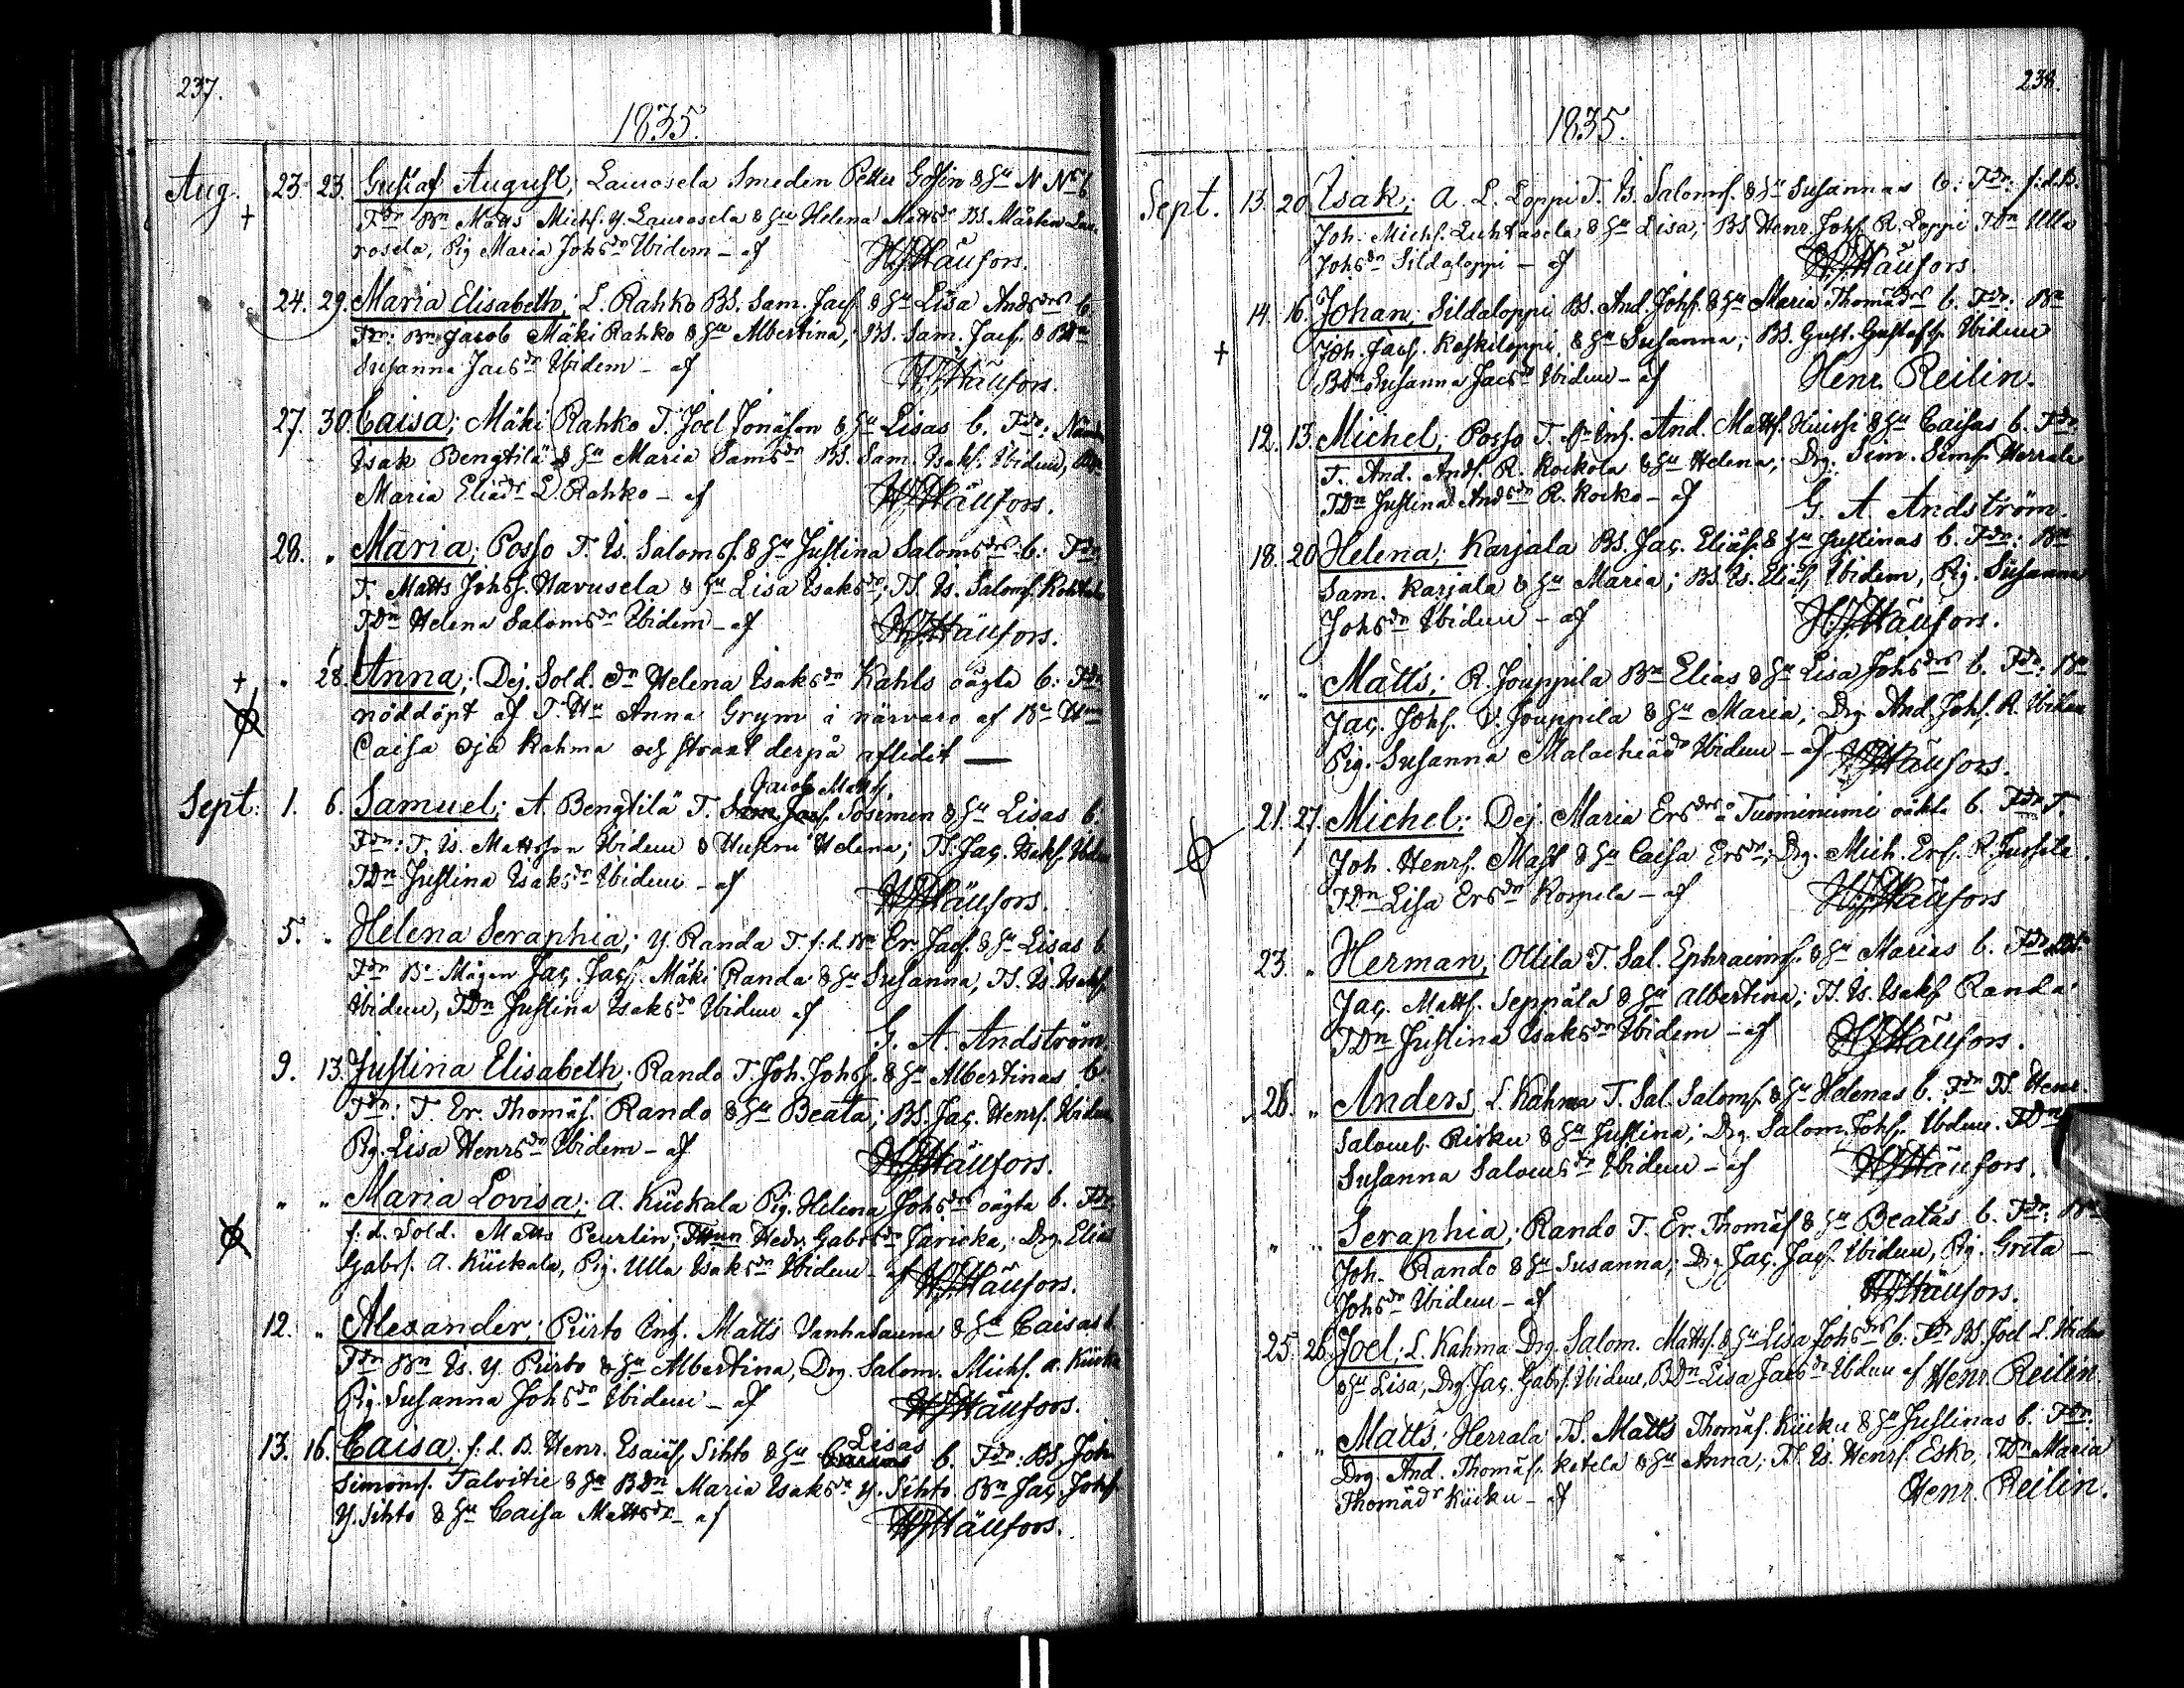 237.
1835.
Aug. 23. 23. Gustaf August; Laurosela Smeden Petter & hu N Ns b
Fdr Bn Matts Michs. Y Laurosela & hu Helena Mattsdr BS. Mårten Lau-
rosela, Pig Maria Johsdr Ibidem - af HJHäufors.
24. 29. Maria Elisabeth; L. Rahko BS. Sam. Jacs. & hu Lisa Andsdrs b
Fdr: Bn Jacob Mäki Rahko & hu Albertina; BS. Sam. Jacs. & BDn
Susanna Jacsdr Ibidem - af HJHäufors.
27. 30. Caisa; Mäki Rahko T. Joel Jonäson & hu Lisas b. Fdr:
Isak Bengtilä & hu Maria Samsdr BS. Sam. Isaks. Ibidem,
Maria Eliädr L. Rahko - af HJHäufors.
28. " Maria; Posso T. Is. Saloms. & hu Justina Salomsdrs b: Fdr:
T. Matts Johss. Havusela & hu Lisa Isaksdr; TS. Is. Saloms.
TDn Helena Salomsdr Ibidem - af HJHäufors.
" 28. Anna; Dej. Sold. dn Helena Isaksdn Kahls oägta b: Fdr
nöddöpt af T. Hn Anna Grym i närvaro af Bn Hn
Caisa Oja Kahma och straxt derpå aflidit —
Jacob Matts.
Sept: 1. 6. Samuel; A. Bengtilä T. Sosimen & hu Lisas b.
Fdr: T. Is. Mattsson Ibidem & Hustru Helena; TS. Jac. Isaks. Ibidem
TDn Justina Isaksdr Ibidem - af HJHäufors.
5. " Helena Seraphia; Y. Randa T. f: d. Bn Er. Jacs. & hu Lisas b
Fdr Bs Mågen Jac. Jacs. Mäki Randa & hu Susanna, TS. Is. Isaks.
Ibidem, TDn Justina Isaksdr Ibidem af
G. A. Andström
9. 13. Justina Elisabeth; Rando T. Joh. Johss. & hu Albertinas b.
Fdr: T. Er. Thomäs. Rando & hu Beata; BS. Jac. Henrs. Ibidem
Pig. Lisa Henrsdr Ibidem - af HJHäufors.
" " Maria Lovisa; A. Kückala Pig. Helena Johsdrs oägta b. Fdr:
f: d. Sold. Matts Peurlin, Hedv. Gabrsdr Järicka, Drg. Elias
Gabrs. A. Kückala, Pig. Ulla Isaksdr Ibidem - af HJHäufors.
12. " Alexander; Piirto Inh. Matts Vanhasauna & hu Caisas b.
Fdr Bn Is. Y Piirto & hu Albertina, Drg. Salom. Michs. A. Kücka
Pig. Susanna Johsdr Ibidem - af HJHäufors.
13. 16. Caisa; f: d. B. Henr. Esaiäs. Sihto & hu Lisas b. Fdr: BS. Joh.
Simons. Talvitie & hu BDn Maria Isaksdr Y. Sihto. Bn Jac. Johs.
Y. Sihto & hu Caisa Mattsdr - af HJHäufors.
238.
1835.
Sept. 13. 20 Isak; A. L. Loppi T. Is. Saloms. & hu Susannas b: Fdr: f: d. B.
Joh. Michs. Luhtasela & hu Lisa; BS Henr. Johs. R. Loppi, TDn Ulla
Johsdr Sildaloppi - af HJHäufors.
14. 16. Johan; Sildaloppi BS. And. Johs. & hu Maria Thomädrs b. Fdr: Bn
Joh. Jacs. Keskiloppi & hu Susanna; BS. Gust. Gustafss. Ibidem
BDn Susanna Jacsdr Ibidem - af Henr. Reilin.
12. 13. Michel; Posso T. Inh. And. Matts. Huissi & hu Caisas b. Fdr:
T. And. Ands. R. Kockola & hu Helena; Drg. Sim. Sims. Herrala
TDn Justina Andsdr R. Kocko - af G. A. Andström.
18. 20 Helena; Karjala BS. Jac. Eliäs. & hu Justinas b. Fdr: Bn
Sam. Karjala & hu Maria; BS. Is. Eliäs. Ibidem, Pig. Susanna
Johsdr Ibidem - af HJHäufors.
" " Matts; R. Jouppila Bn Elias & hu Lisa Johsdrs b. Fdr: Bn
Jac. Johs. V. Jouppila & hu Maria; Drg And. Johs. R. Ibidem
Pig. Susanna Malachiädr Ibidem - af HJHäufors.
21. 27. Michel; Dej. Maria Ersdrs Tuominiemi oäkta b. Fdr T.
Joh. Henrs. Mast & hu Caisa Ersdr; Drg. Mich. Ers. R. Jussila.
TDn Lisa Ersdr Korpela - af HJHäufors
23. " Herman; Ollila T. Sal. Ephraims. & hu Marias b. Fdr
Jac. Matts. Seppälä & hu Albertina; TS. Is. Isaks. Randa
TDn Justina Isaksdr Ibidem - af HJHäufors.
26. " Anders; L. Kahma T. Sal. Saloms. & hu Helenas b. Fdr TS. Henr.
Saloms. Risku & hu Justina; Drg. Salom. Johs. Ibidem. TDn
Susanna Salomsdr Ibidem - af HJHäufors.
" " Seraphia; Rando T. Er. Thomäs & hu Beatas b. Fdr: Bn
Joh. Rando & hu Susanna; Drg. Jac. Jacs. Ibidem, Pig. Greta —
Johsdr Ibidem - af HJHäufors.
25. 26. Joel; L. Kahma Drg. Salom. Matts. & hu Lisa Johsdrs b. Fdr BS. Joel L. Ibidem
& hu Lisa, Drg. Jac. Gabrs. Ibidem, BDn Lisa Jacsdr Ibidem af Henr. Reilin
" " Matts; Herrala TS. Matts Thomäs. Kücku & hu Justinas b. Fdr:
Drg. And. Thomäs. Ketela & hu Anna; TS. Is. Henrs. Esko, TDn Maria
Thomädr Kücku - af Henr. Reilin.